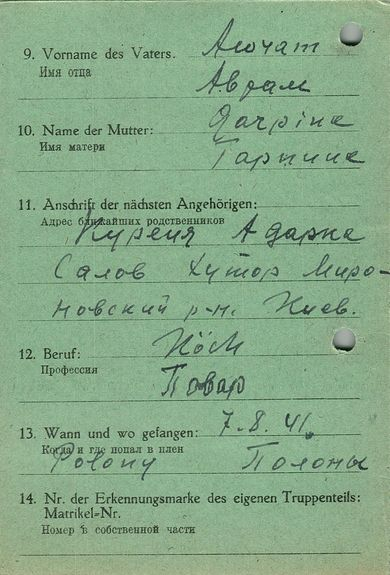 9. Vorname des Vaters.
Имя отца
Аврам
10. Name der Mutter:
Имя матери
11. Anschrift der nächsten Angehörigen:
Адрес ближайших родственников
Салов Хутор Миро-
новский р-н. Киев.
12. Beruf: Köch
Профессия
Повар
13. Wann und wo gefangen: 7. 8. 41.
Когда и где попал в плен
Polony Полоны
14. Nr. der Erkennungsmarke des eigenen Truppenteils:
Matrikel-Nr.
Номер в собственной части